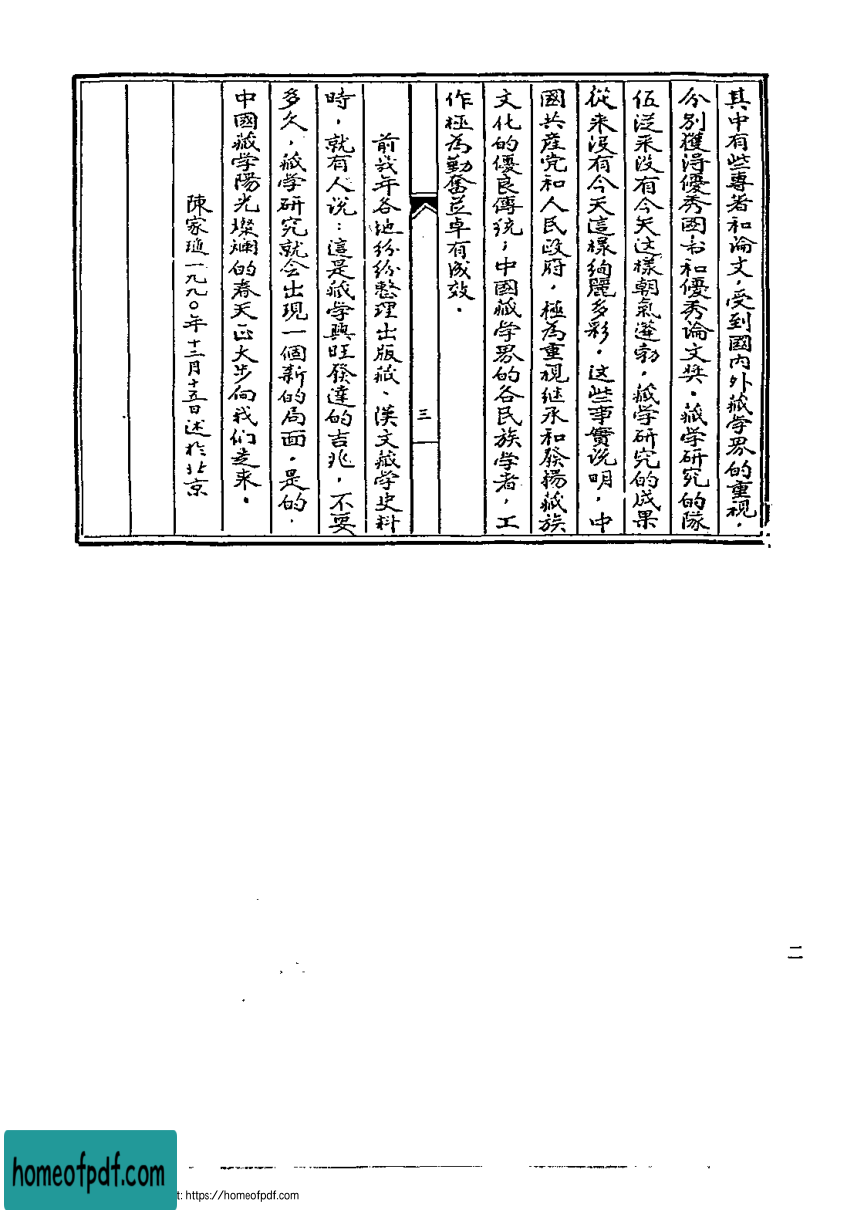 其中有些專著和論文，受到國內外藏学界的重視，
分別獲得優秀図书和優秀論文奖。藏学研究的隊
伍從来没有今天这樣朝氣蓬勃，藏学研究的成果
從来没有今天這樣絢麗多彩。这些事實说明，中
國共産党和人民政府，極為重視継承和發揚藏族
文化的優良傳统；中國藏学界的各民族学者，工
作極為勤奮並卓有成效。
三
前幾年各地纷纷整理出版藏、漢文藏学史料
時，就有人说：這是藏学興旺發達的吉兆，不要
多久，藏学研究就会出現一個新的局面。是的，
中國藏学陽光燦斓的春天正大步向我们走来。
陳家璡一九九〇年十二月十五日述於北京
二
homeofpdf.com
t: https://homeofpdf.com